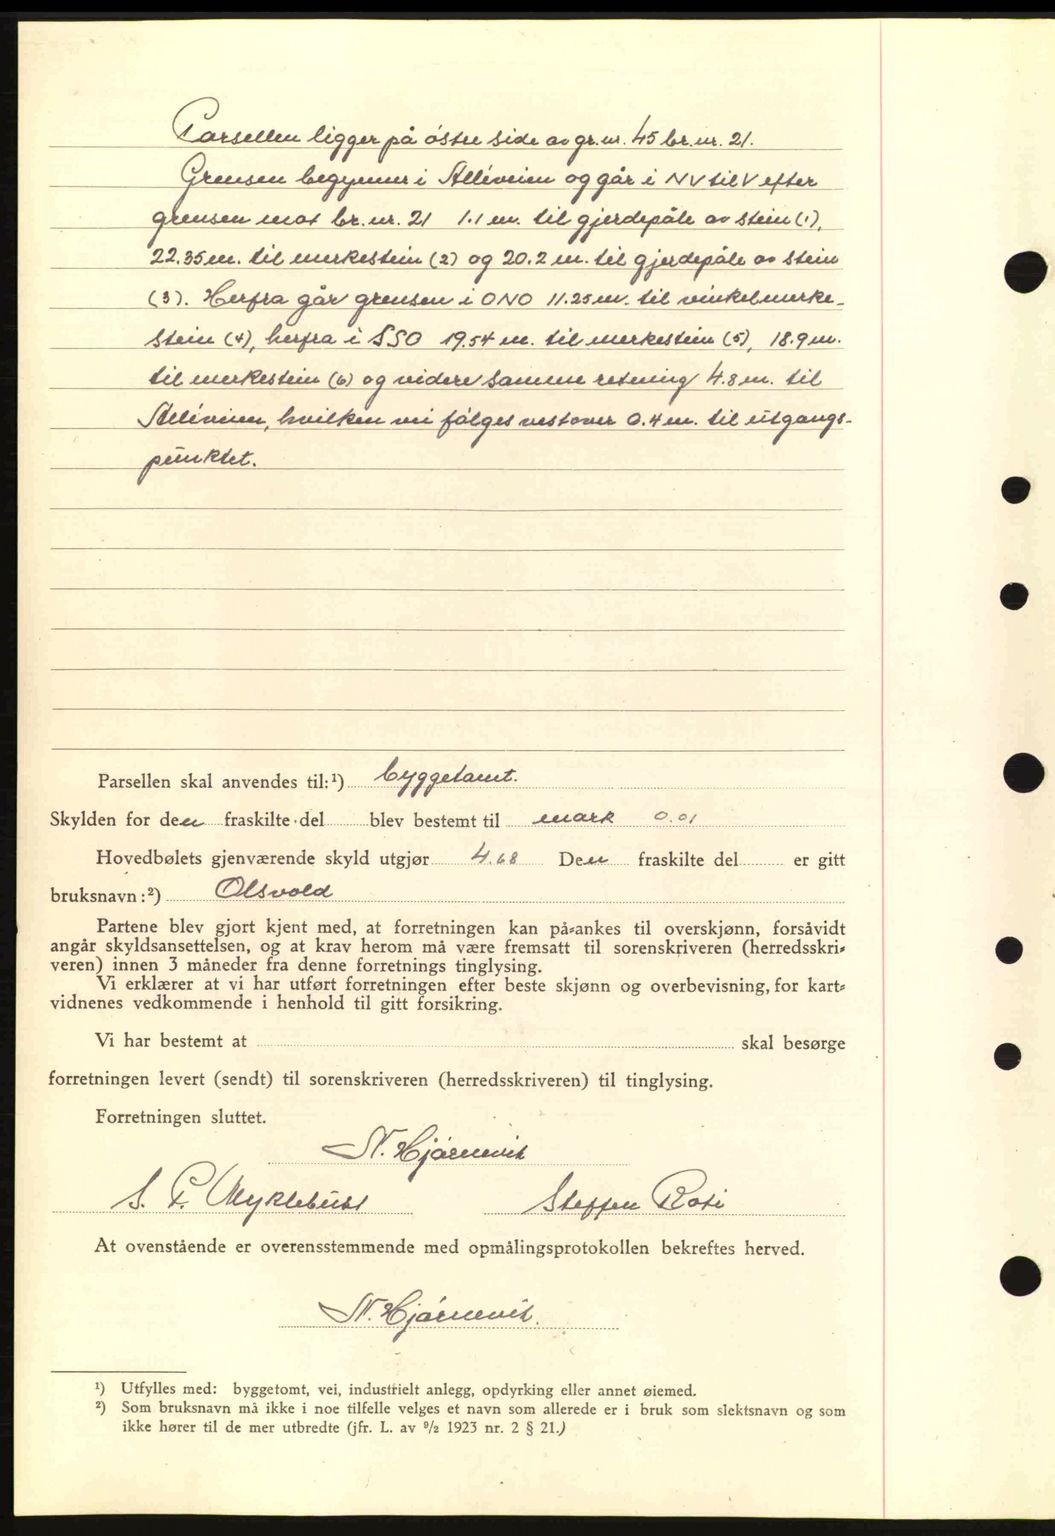 Parsellen ligger på östre side av gr.nr. 45 br.nr. 21.
Grensen begynner i Alléveien og går i NV til V efter
grensen mot br.nr. 21 1.1 m. til gjerdepåle av stein (1),
22.35 m. til merkestein (2) og 20.2 m. til gjerdepåle av stein
(3). Herfra går grensen i ONO 11.25 m. til vinkelmerke-
stein (4), herfra i SSO 19.54 m. til merkestein (5), 18.9 m.
til merkestein (6) og videre samme retning 4.8 m. til
Alléveien, hvilken vei følges vestover 0.4 m. til utgangs-
punktet.
Parsellen skal anvendes til:¹) byggetomt.
Skylden for den fraskilte del blev bestemt til mark 0.01
Hovedbølets gjenværende skyld utgjør 4.68 Den fraskilte del er gitt
bruksnavn:²) Olsvold
Partene blev gjort kjent med, at forretningen kan på-ankes til overskjønn, forsåvidt
angår skyldsansettelsen, og at krav herom må være fremsatt til sorenskriveren (herredsskri-
veren) innen 3 måneder fra denne forretnings tinglysing.
Vi erklærer at vi har utført forretningen efter beste skjønn og overbevisning, for kart-
vidnenes vedkommende i henhold til gitt forsikring.
Vi har bestemt at skal besørge
forretningen levert (sendt) til sorenskriveren (herredsskriveren) til tinglysing.
Forretningen sluttet.
N. Hjörnevik
S. P. Myklebust Steffen Roti
At ovenstående er overensstemmende med opmålingsprotokollen bekreftes herved.
N. Hjörnevik.
¹) Utfylles med: byggetomt, vei, industrielt anlegg, opdyrking eller annet øiemed.
²) Som bruksnavn må ikke i noe tilfelle velges et navn som allerede er i bruk som slektsnavn og som
ikke hører til de mer utbredte (jfr. L. av 9/2 1923 nr. 2 § 21.)